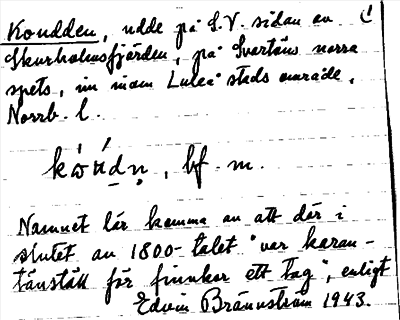 Koudden, udde på S.V. sidan av
Skurholmsfjärden, på Svartöns norra
spets, in inom Luleå stads område,
Norrb. l.
kòu̱dn̥, bf. m.
Namnet lär komma av att där i
slutet av 1800-talet "var karan-
tänställ för finnkor ett tag", enligt
Edvin Brännström 1943.